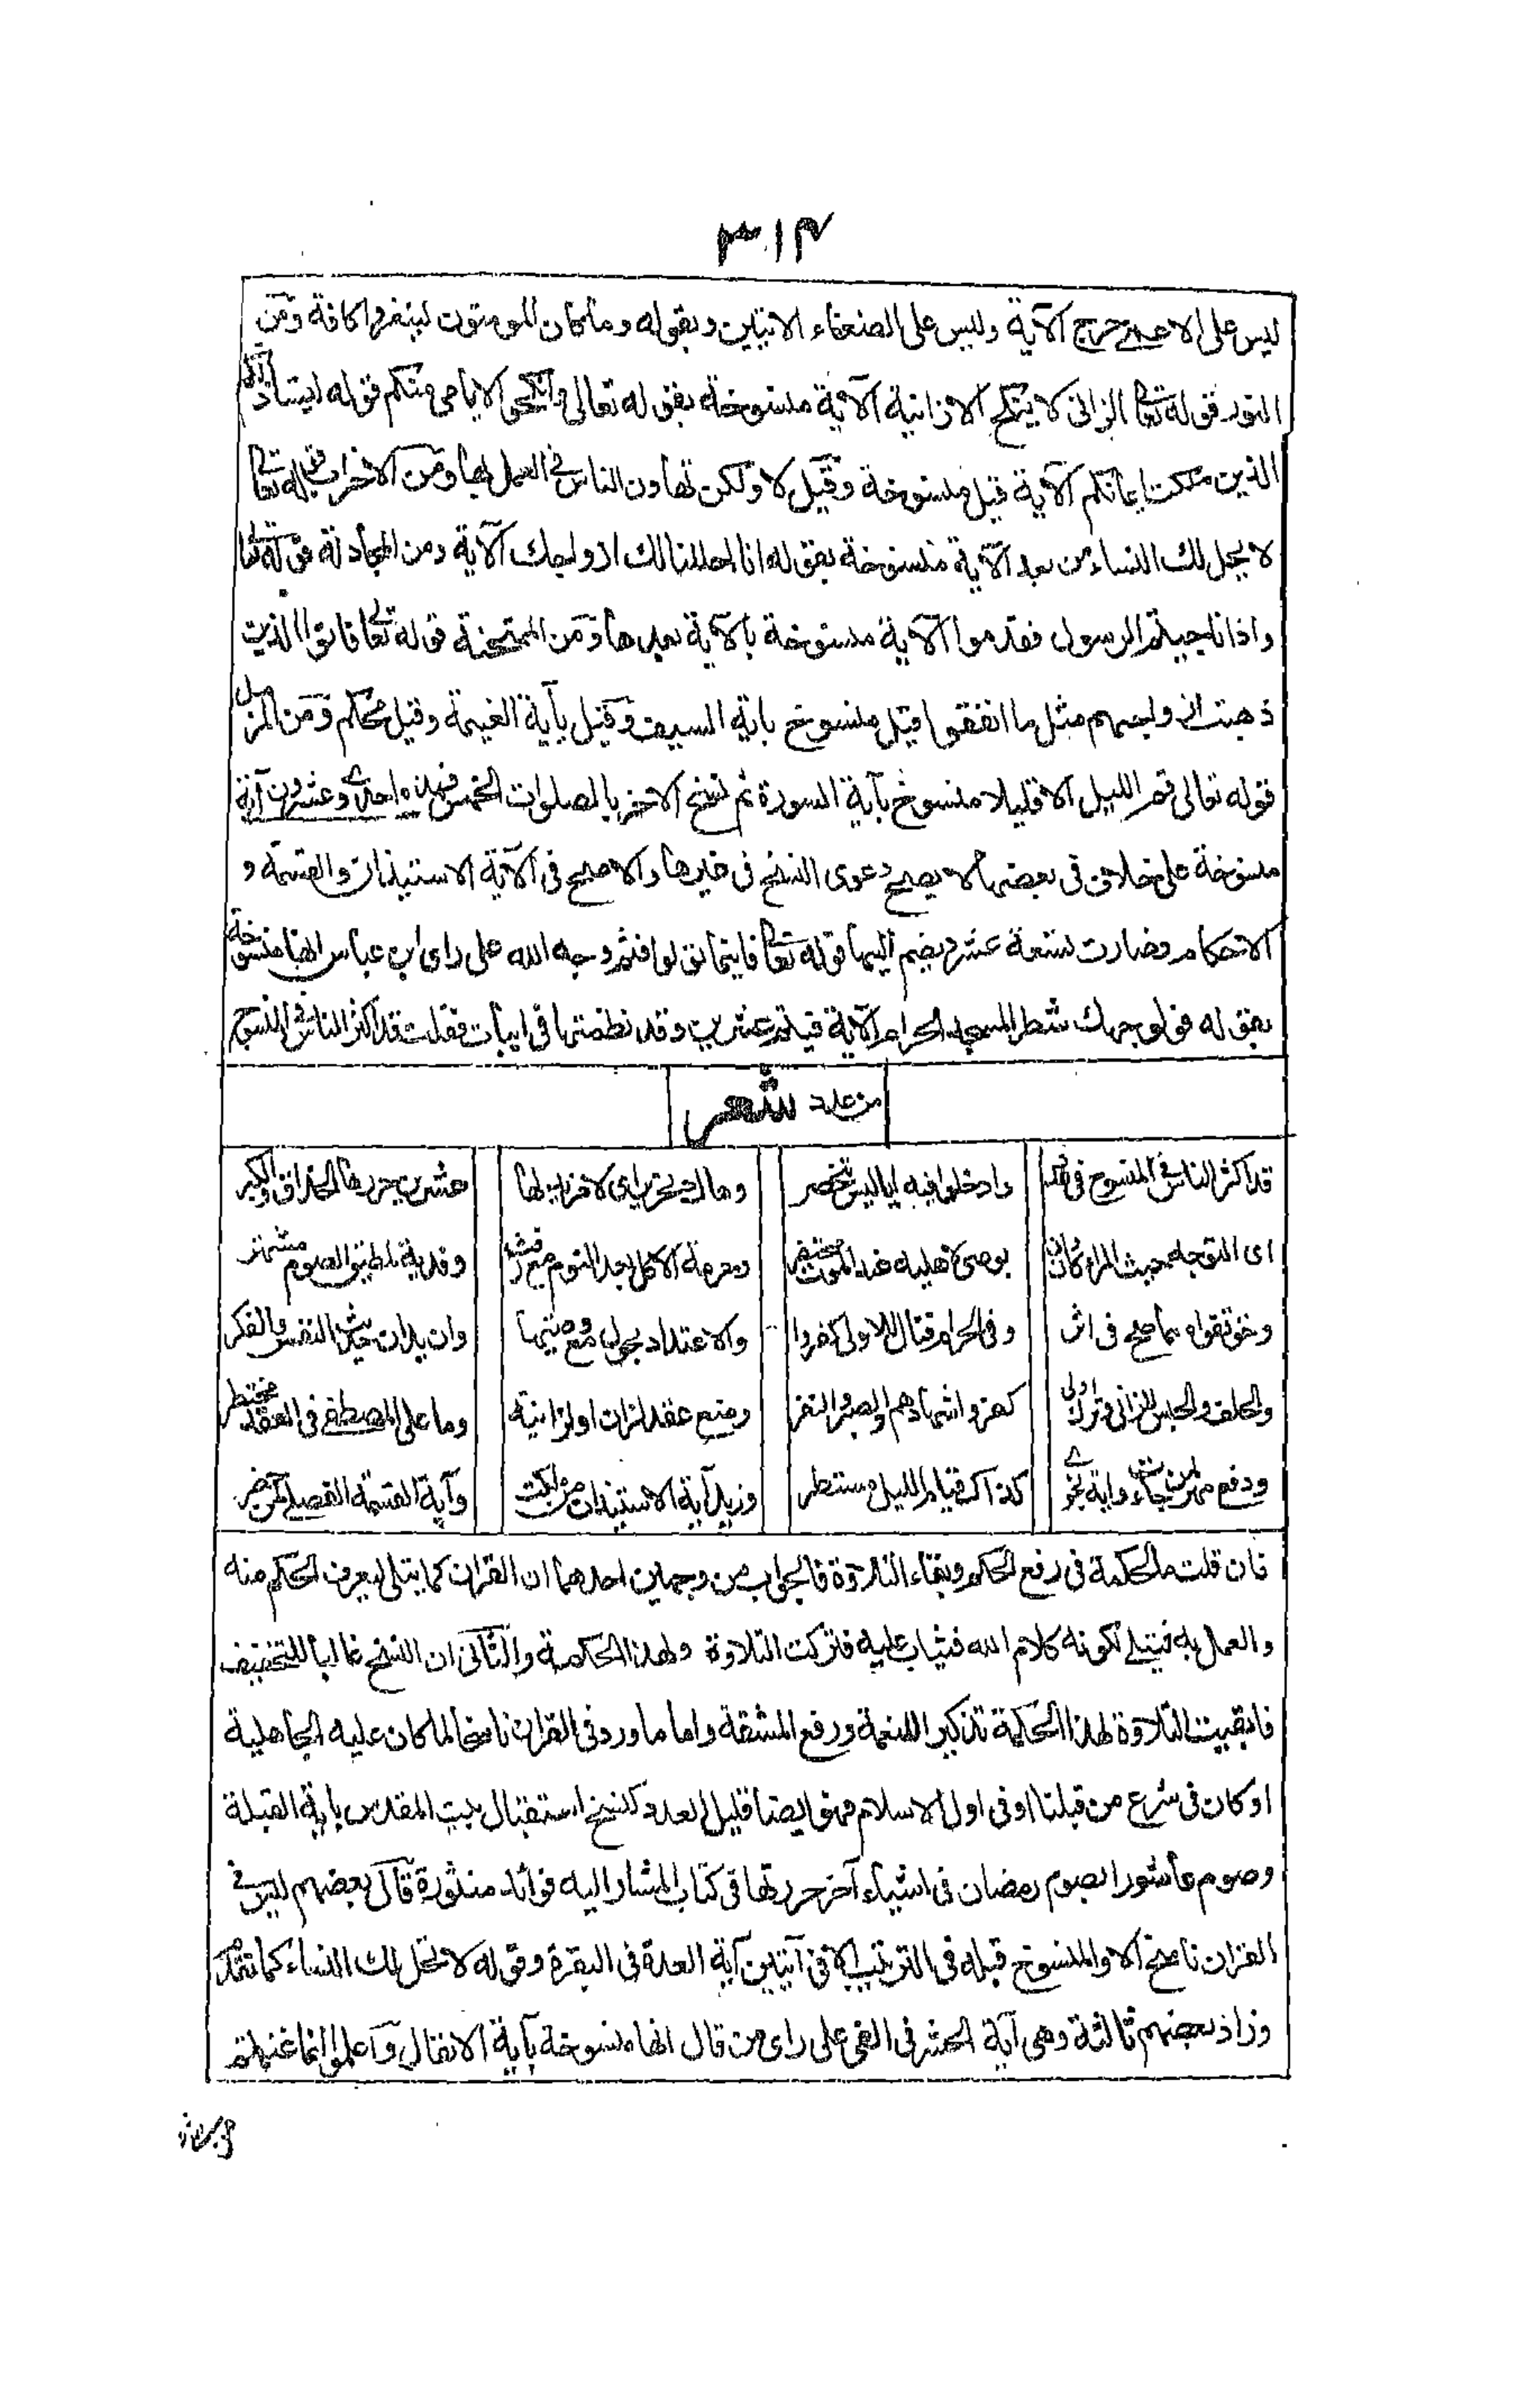 ٣١٤
ليس على الاعمى حرج الآية وليس على الضعفاء الايتين وبقوله وما كان المومنون لينفروا كافة ومن
النور قوله تعالى الزانى لا ينكح الا زانية الآية منسوخة بقوله تعالى وانكحوا الايامى منكم قوله ليستأذنكم
الذين ملكت ايمانكم الآية قيل منسوخة وقيل لا ولكن تهاون الناس فى العمل بها ومن الاحزاب قوله تعالى
لا يحل لك النساء من بعد الآية منسوخة بقوله انا احللنا لك ازواجك الآية ومن المجادلة قوله تعالى
واذا ناجيتم الرسول فقدموا الآية منسوخة بالآية بعدها ومن الممتحنة قوله تعالى فاتوا الذين
ذهبت ازواجهم مثل ما انفقوا قيل منسوخ باية السيف وقيل بآية الغنيمة وقيل محكم ومن المزمل
قوله تعالى قم الليل الا قليلا منسوخ بآية السورة ثم نسخ الاخر بالصلوات الخمس فهذه احدى وعشرون آية
منسوخة على خلاف فى بعضها لا يصح دعوى النسخ فى غيرها والاصح فى الآية الاستيذان والقسمة و
الاحكام وصارت تسعة عشر ويضم اليها قوله تعالى فاينما تولوا فثم وجه الله على راى ابن عباس انها منسوخة
بقوله فول وجهك شطر المسجد الحرام الآية فيتم عشرين وقد نظمتها فى ابيات فقلت قد اكثر الناس فى المنسوخ
من عدد شعر
قد اكثر الناس فى المنسوخ من عدد وادخلوا فيه ايا ليس تنحصر وهاك تحرير اى لا مزيد لها عشرين حررها الحذاق والكبر
اى التوجه حيث المرء كان وان يوصى لاهليه عند الموت محتضر وحرمة الاكل بعد النوم مع رفث وفدية لمطيق الصوم مشتهر
وحق تقواه بما صح فى اثر وفى الحرام قتال للاولى كفروا والاعتداد بحول مع وصيتها وان يدان حديث النفس والفكر
والحلف والحبس للزانى وترك اولى كفروا اشهادهم والصبر والنفر ومنع عقد لزان او لزانية وما على المصطفى فى العقد محتظر
ودفع مهر لمن جاءت واية نجوى كذاك قيام الليل مستطر وزيد آية الاستيذان من ملكت وآية القسمة الفضلى لمن حضر
فان قلت ما الحكمة فى رفع الحكم وبقاء التلاوة فالجواب من وجهين احدهما ان القران كما يتلى ليعرف الحكم منه
والعمل به فيتلى لكونه كلام الله فيثاب عليه فتركت التلاوة ولهذا الحكمة والثانى ان النسخ غالبا للتخفيف
فابقيت التلاوة لهذا الحكمة تذكير اللنعمة ورفع المشقة واما ما ورد فى القران ناسخا لما كان عليه الجاهلية
او كان فى شرع من قبلنا او فى اول الاسلام فهو ايضا قليل العدد كنسخ استقبال بيت المقدس باية القبلة
وصوم عاشورا بصوم رمضان فى اشياء آخر حررتها فى كتاب المشار اليه فوائد منثورة قال بعضهم ليس فى
القران ناسخ الا والمنسوخ قبله فى الترتيب الا فى آيتين آية العدة فى البقرة وقوله لا تحل لك النساء كما تقدم
وزاد بعضهم ثالثة وهى آية الحشر فى الفى على راى من قال انها منسوخة بآية الانفال واعلموا انما غنمتم